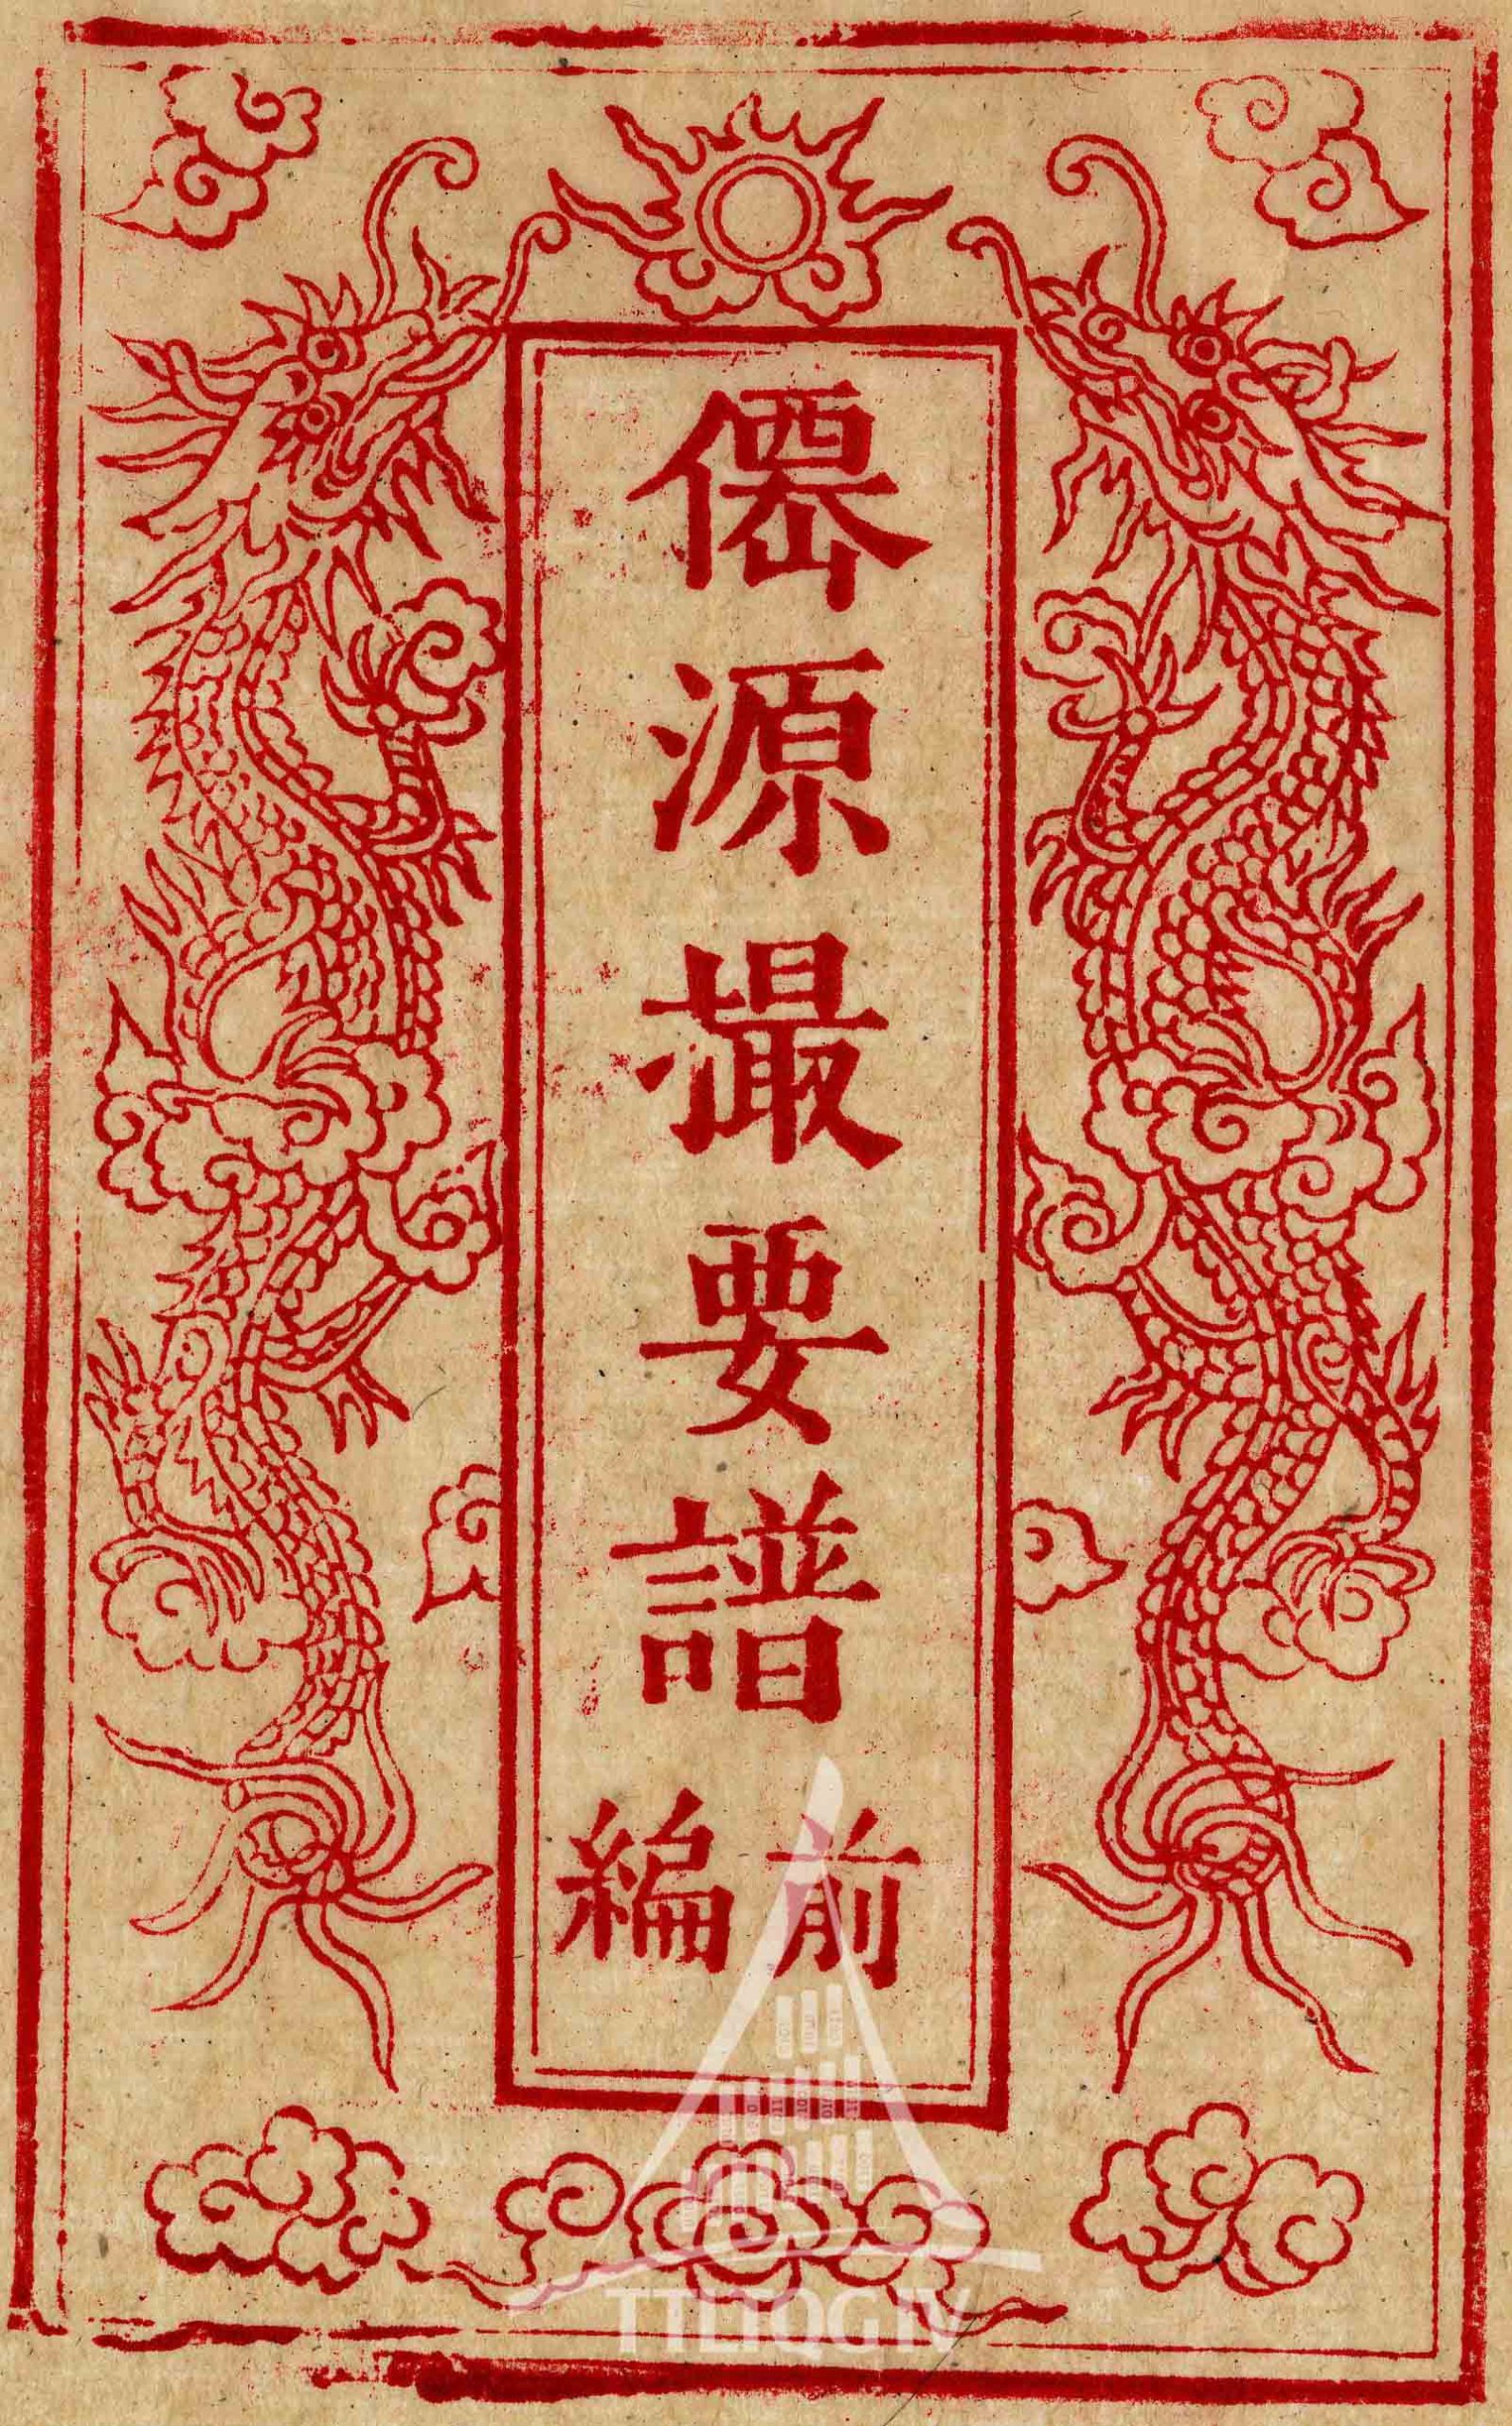 僊源撮要譜
前編
TTLTQG IV